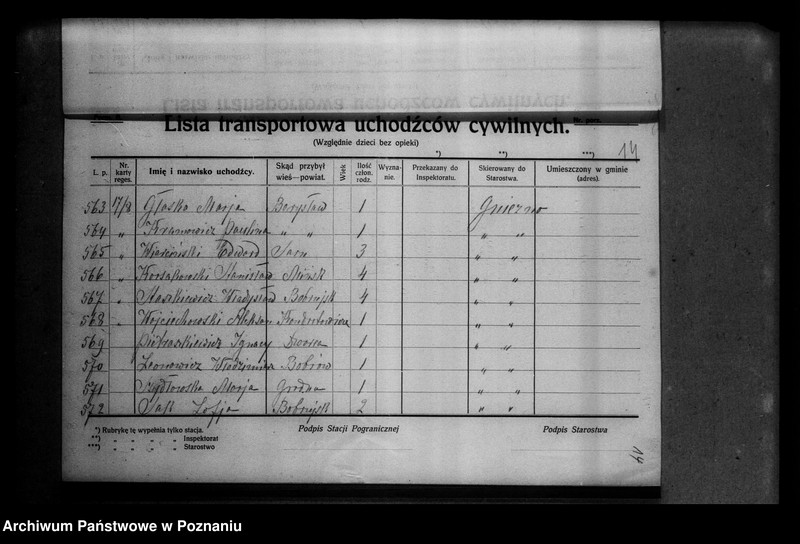 Lista transportowa uchodźców cywilnych.
(Względnie dzieci bez opieki)
*) **) ***) 14
L. p. Nr. karty reges. Imię i nazwisko uchodźcy. Skąd przybył wieś—powiat. Wiek Ilość człon. rodz. Wyznanie. Przekazany do Inspektoratu. Skierowany do Starostwa. Umieszczony w gminie (adres).
563 17/8 Głaska Marja Borysław 1 Gniezno
564 „ Paulina „ „ 1 „ „
565 „ Edward 3 „ „
566 „ Korsakowski Stanisław Mińsk 4 „ „
567 „ Staszkiewicz Władysław Bobrujsk 4 „ „
568 „ Wojciechowski 1 „ „
569 Pietraszkiewicz Ignacy 1 „ „
570 Leonowicz Włodzimierz 1 „ „
571 Szydłowska Marja Grodno 1 „ „
572 Zofja Bobrujsk 2 „ „
*) Rubrykę tę wypełnia tylko stacja.
**) „ „ „ „ Inspektorat
***) „ „ „ „ Starostwo
Podpis Stacji Pogranicznej
Podpis Starostwa
14
Archiwum Państwowe w Poznaniu